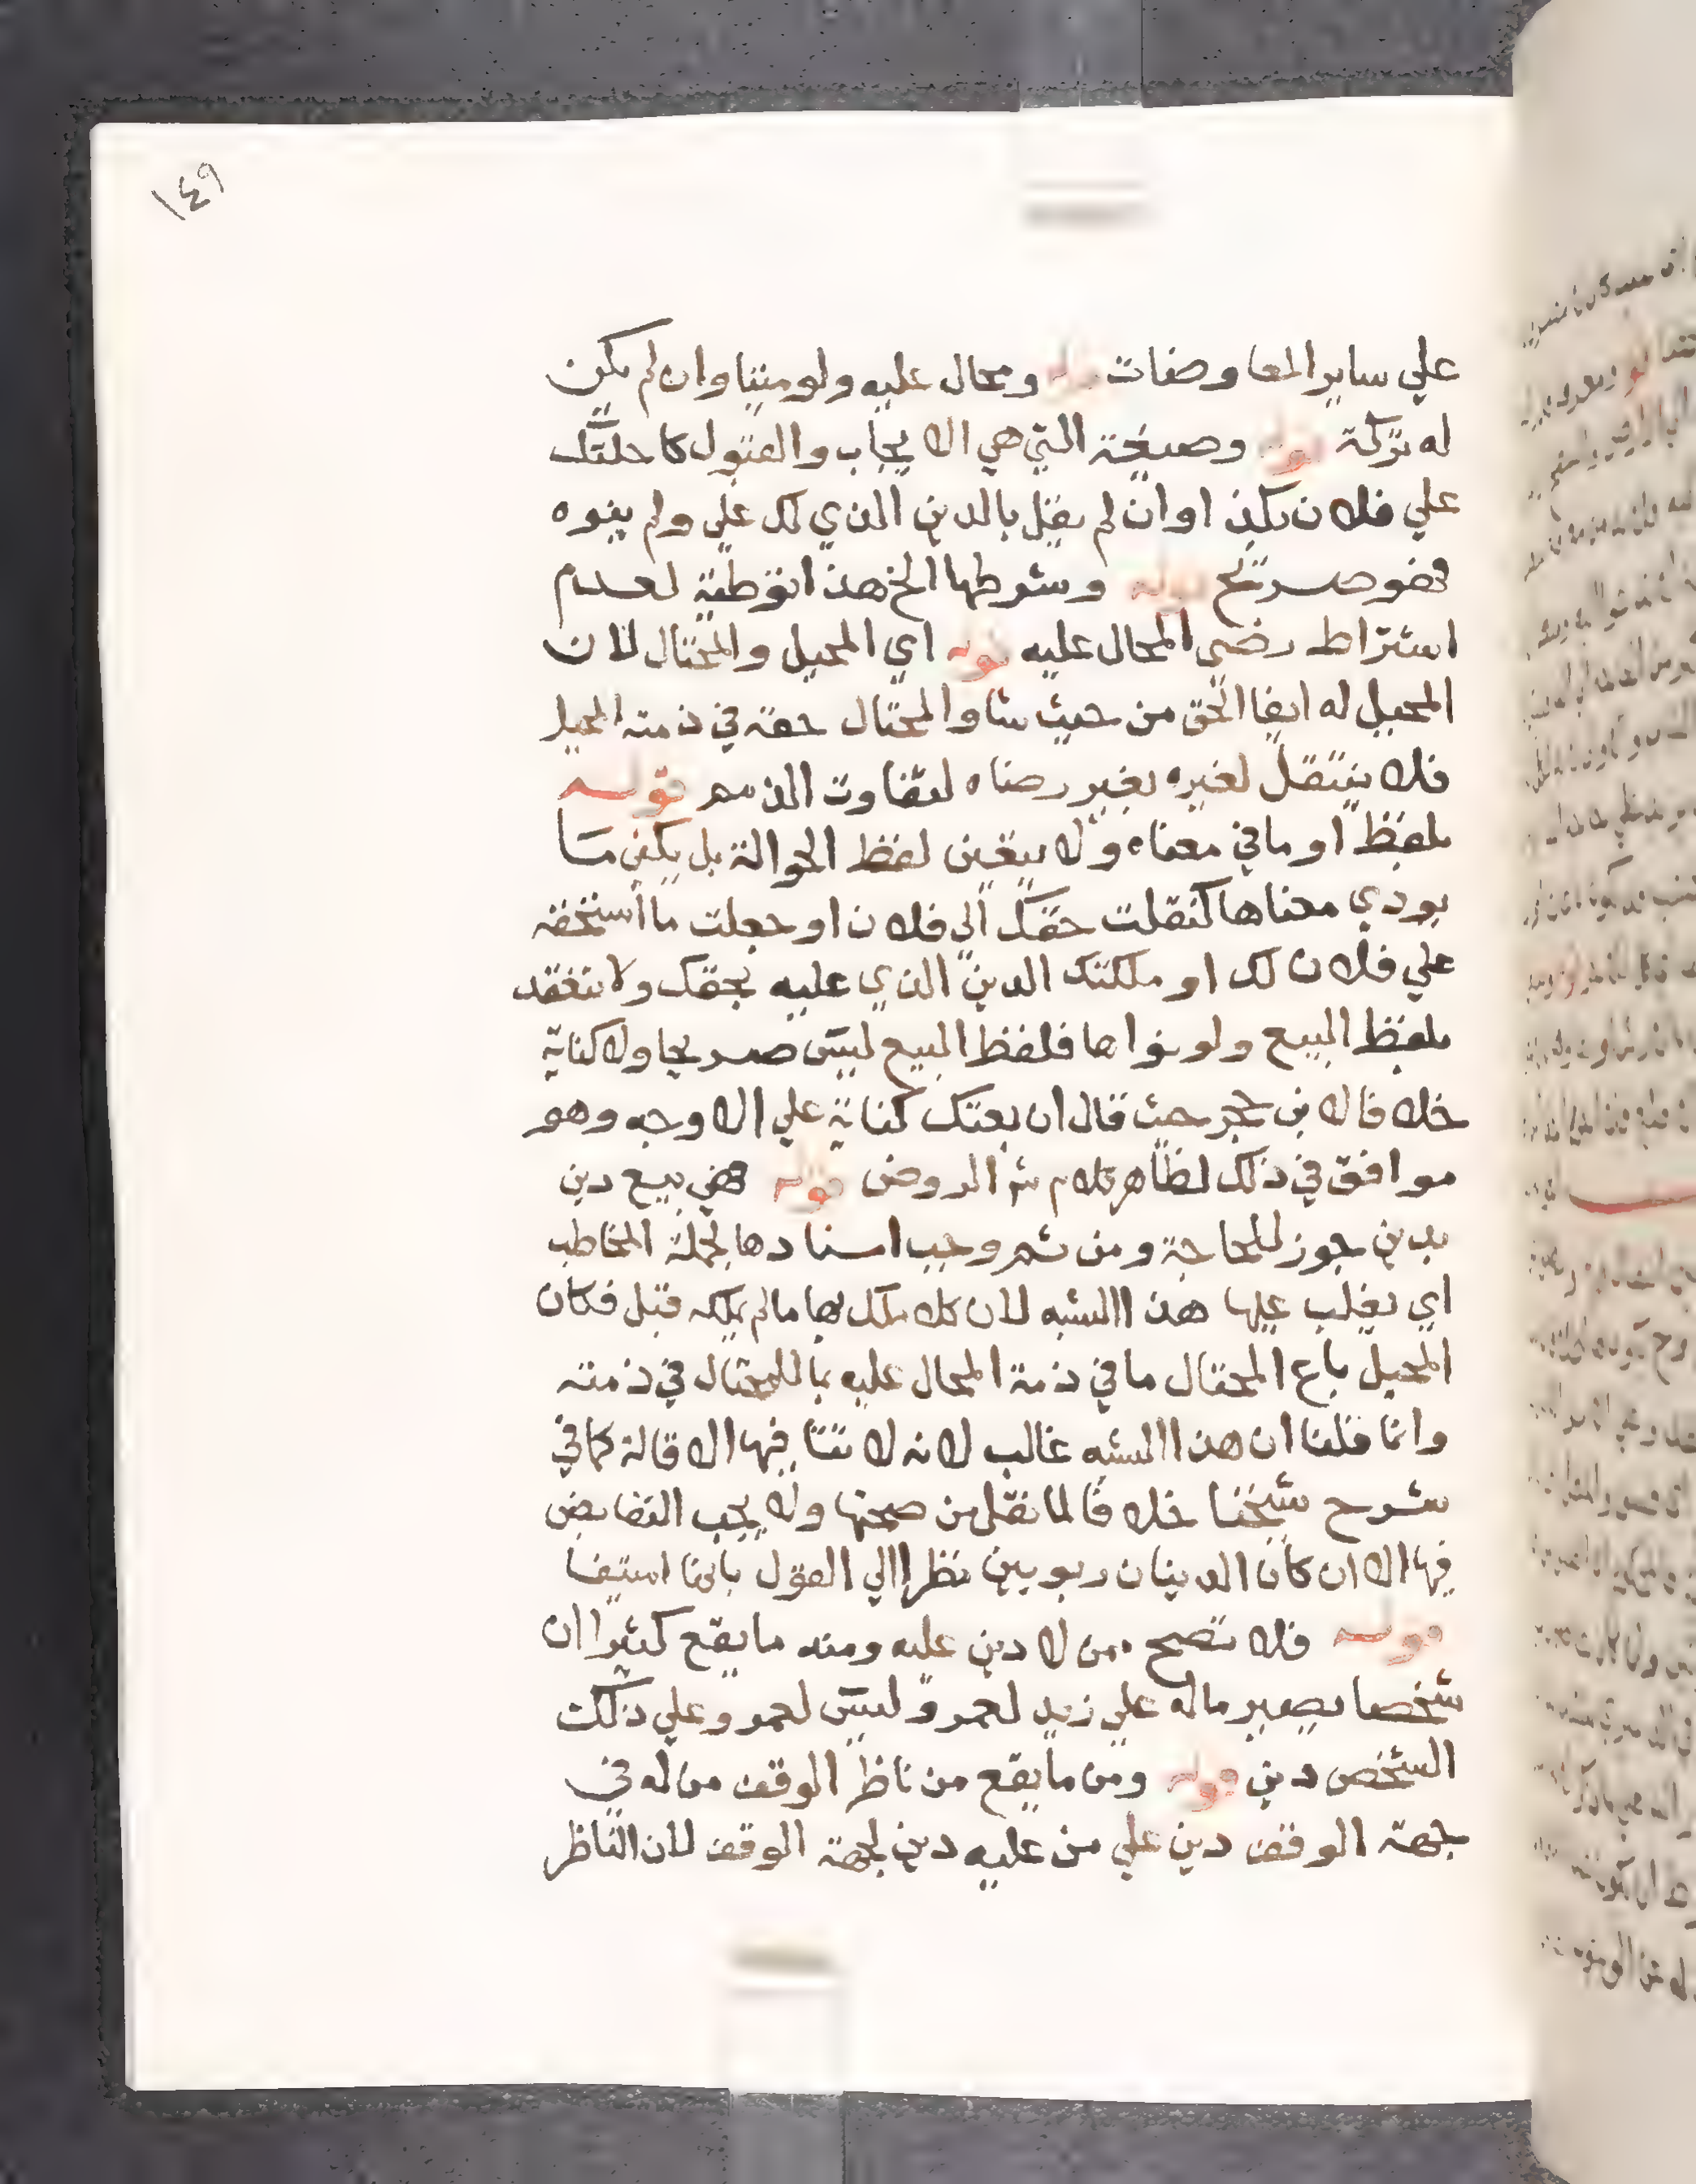 ١٤٩
علي ساير المعاوضات قوله ومحال عليه ولو ميتا وان لم يكن
له تركة قوله وصيغة التي هي الايجاب والقبول كاحلتك
علي فلان بكذا وان لم يقل بالدين الذي لك علي ولم ينوه
فهو صريح قوله وشرطها الخ هذا توطية لعدم
اشتراط رضي المحال عليه قوله اي المحيل والمحتال لان
المحيل له ايفا الحق من حيث شا والمحتال حقه في ذمة المحيل
فلا ينتقل لغيره بغير رضاه لتفاوت الذمم قوله
بلفظ او ما في معناه ولا يتعين لفظ الحوالة بل يكفي ما
يودي معناها كنقلت حقك الي فلان او جعلت ما استحقه
علي فلان لك او ملكتك الدين الذي عليه بحقك ولا تنعقد
بلفظ البيع ولو نواها فلفظ البيع ليس صريحا ولا كناية
خلافا لابن حجر حيث قال ان بعتك كناية علي الاوجه وهو
موافق في ذلك لظاهر كلام شرالروض قوله فهي بيع دين
بدين جوز للحاجة ومن ثم وجب اسنادها لجملة المخاطب
اي يغلب عليها هذا الشبه لان كلا ملك بها ما لم يملكه قبل فكان
المحيل باع المحتال ما في ذمة المحال عليه بما للمحتال في ذمته
وانما قلنا ان هذا الشبه غالب لانه لا تتا فيها الاقالة كما في
شرح شيخنا خلافا لما نقل من صحتها ولا يجب التقابض
فيها الا ان كان الدينان ربويين نظرا الي القول بانها استيفا
قوله فلا تصح ممن لا دين عليه ومنه ما يقع كثيرا ان
شخصا يصير ماله علي زيد لعمرو وليس لعمرو علي ذلك
الشخص دين قوله ومن ما يقع من ناظر الوقف من له في
جهة الوقف دين علي من عليه دين لجهة الوقف لان الناظر